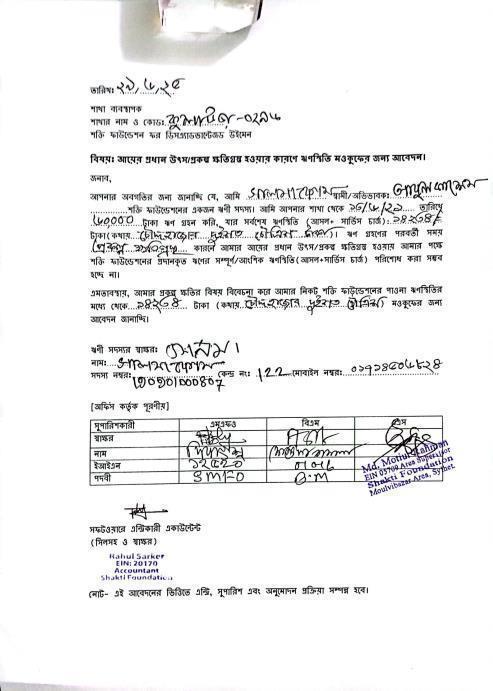 তারিখঃ ২৯/৬/২৫
শাখা ব্যবস্থাপক
শাখার নাম ও কোডঃ কুলাউড়া-০২৯৬
শক্তি ফাউন্ডেশন ফর ডিসএ্যাডভান্টেজড উইমেন
বিষয়: আয়ের প্রধান উৎস/প্রকল্প ক্ষতিগ্রস্থ হওয়ার কারণে ঋণস্থিতি মওকুফের জন্য আবেদন।
জনাব,
আপনার অবগতির জন্য জানাচ্ছি যে, আমি সালমা বেগম স্বামী/অভিভাবকঃ আবুল কাশেম
শক্তি ফাউন্ডেশনের একজন ঋণী সদস্য। আমি আপনার শাখা থেকে তারিখে
টাকা ঋণ গ্রহন করি, যার সর্বশেষ ঋণস্থিতি (আসল+ সার্ভিস চার্জ): ১৪২৩৪
টাকা(কথায় চৌদ্দহাজার দুইশত চৌত্রিশ টাকা)। ঋণ গ্রহণের পরবর্তী সময়
প্রকল্প ক্ষতিগ্রস্থ কারনে আমার আয়ের প্রধান উৎস/প্রকল্প ক্ষতিগ্রস্থ হওয়ায় আমার পক্ষে
শক্তি ফাউন্ডেশনের প্রদানকৃত ঋণের সম্পূর্ণ/আংশিক ঋণস্থিতি(আসল+সার্ভিস চার্জ) পরিশোধ করা সম্ভব
হচ্ছে না।
এমতাবস্থায়, আমার প্রকল্প ক্ষতির বিষয় বিবেচনা করে আমার নিকট শক্তি ফাউন্ডেশনের পাওনা ঋণস্থিতির
মধ্যে থেকে ১৪২৩৪ টাকা (কথায় চৌদ্দহাজার দুইশত চৌত্রিশ মওকুফের জন্য
আবেদন জানাচ্ছি।
ঋণী সদস্যর স্বাক্ষরঃ
নামঃ সালমা বেগম
সদস্য নম্বরঃ কেন্দ্র নংঃ 122 মোবাইল নম্বরঃ
[অফিস কর্তৃক পূরণীয়]
সুপারিশকারী এমএফও বিএম এএস
স্বাক্ষর
নাম
ইআইএন
পদবী SMFO B.M
Md. Motiur Rahman
EIN 05709 Area Supervisor
Shakti Foundation
Moulvibazar Area, Sylhet.
সফটওয়ারে এন্ট্রিকারী একাউন্টেন্ট
(সিলসহ ও স্বাক্ষর)
Rahul Sarker
EIN: 20170
Accountant
Shakti Foundation
নোট- এই আবেদনের ভিত্তিতে এন্ট্রি, সুপারিশ এবং অনুমোদন প্রক্রিয়া সম্পন্ন হবে।